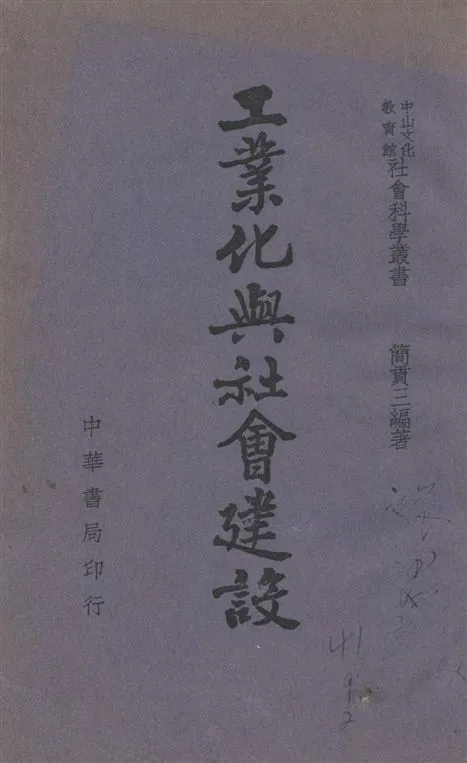 中山文化
教育館
社會科學叢書
簡貫三編著
工業化與社會建設
中華書局印行
41
9
2